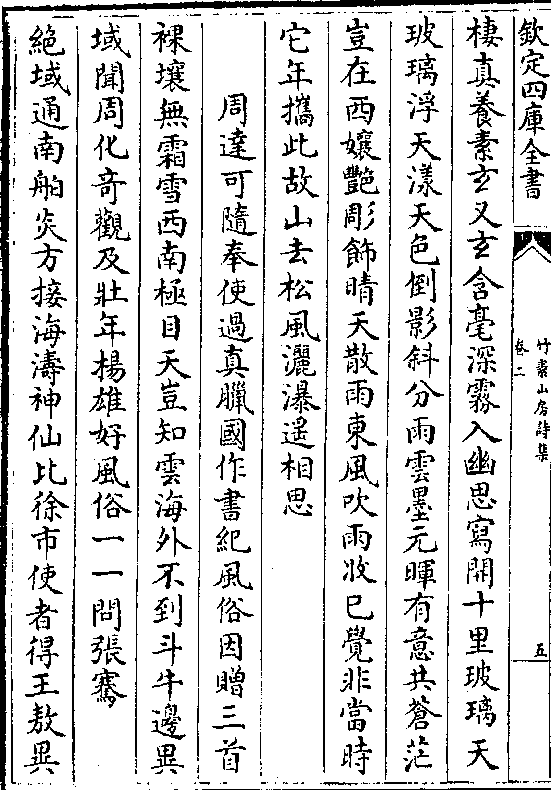 欽定四庫全書
竹素山房詩集
卷二
五
棲真養素玄又玄含毫深霧入幽思寫開十里玻璃天
玻璃浮天漾天色倒影斜分雨雲墨元暉有意共蒼茫
豈在西孃艷彫飾晴天散雨東風吹雨收已覺非當時
它年攜此故山去松風灑瀑遥相思
周達可隨奉使過真臘國作書紀風俗因贈三首
裸壤無霜雪西南極目天豈知雲海外不到斗牛邊異
域聞周化奇觀及壯年楊雄好風俗一一問張騫
絕域通南舶炎方接海濤神仙比徐市使者得王敖異